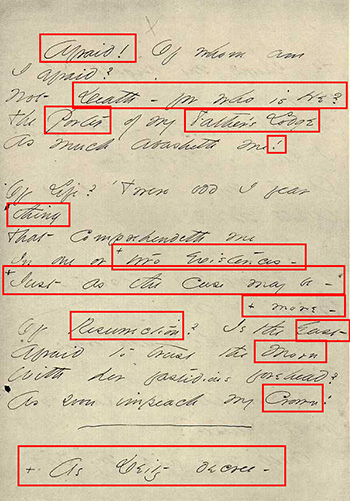 Afraid! Of whom am
I afraid?
Not Death – for who is He?
The Porter of my Father's Lodge
As much abasheth me!
Of Life? 'Twere odd I fear
thing
That comprehendeth me
In one or + two Existences –
+ Just as the Case may be –
+ more –
Of Resurrection? Is the East
Afraid to trust the Morn
With her fastidious forehead?
As soon impeach my Crown!
+ As Deity decree –